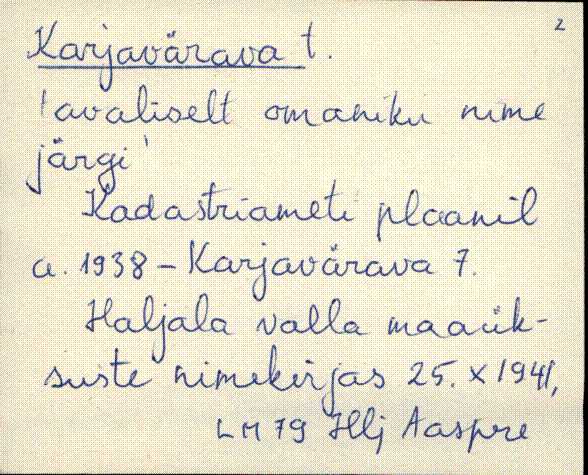 2
Karjavärava t.
'avaliselt omaniku nime
järgi'
Kadastriameti plaanil
a. 1938 - Karjavärava 7.
Haljala valla maaük-
suste nimekirjas 25. X 1941,
LM 79 Hlj Aaspre